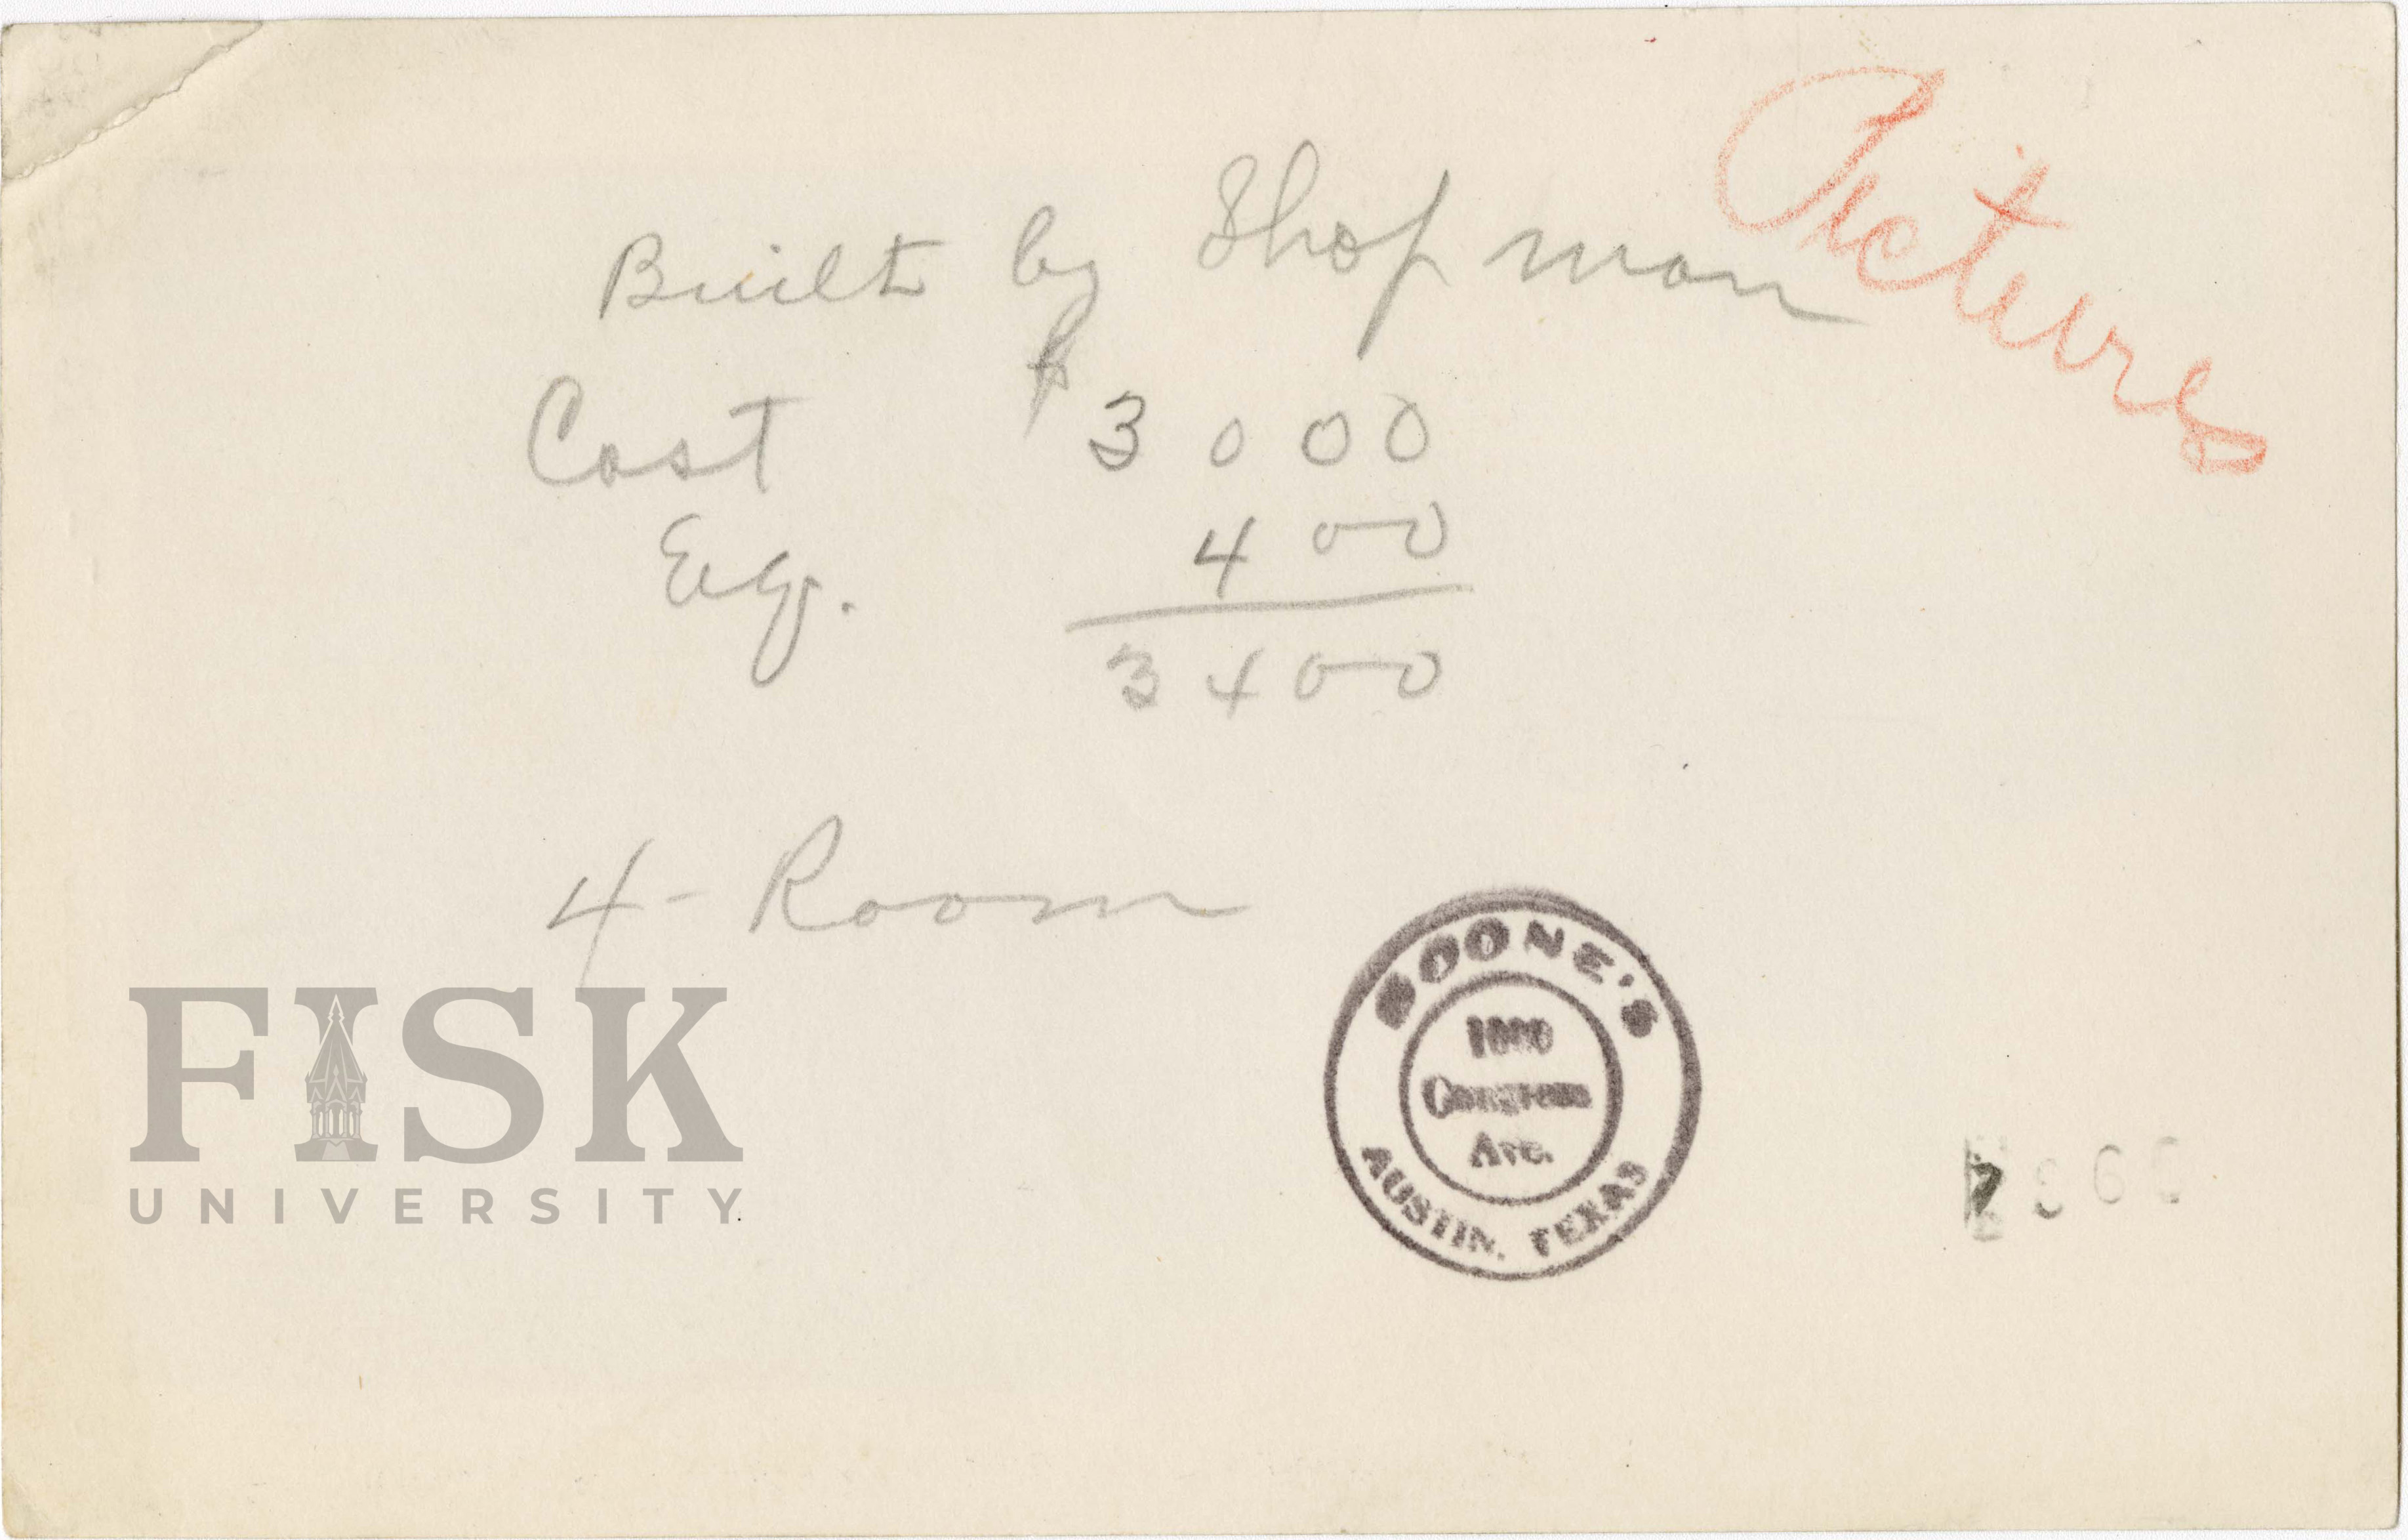 Pictures
Built by Shop man
Cost $3000
Eq. 400
3400
4-Room
FISK
UNIVERSITY
BOONE'S
Congress
Ave.
AUSTIN, TEXAS